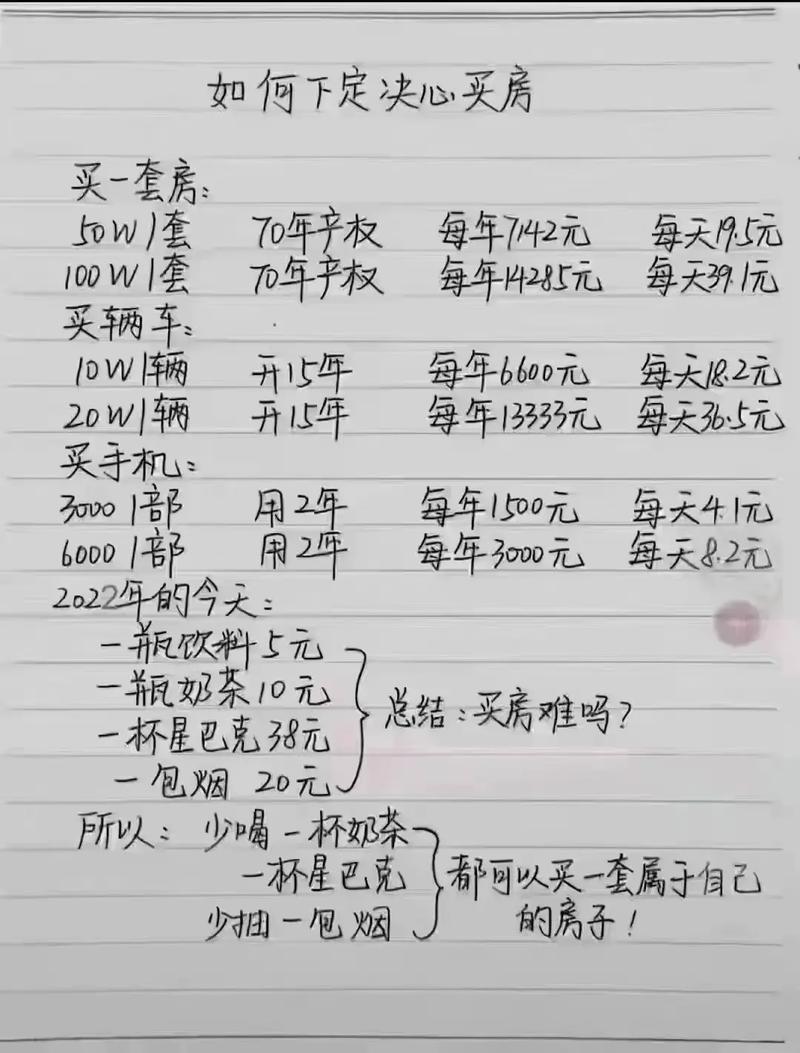 如何下定决心买房
买一套房:
50W1套 70年产权 每年7142元 每天19.5元
100W1套 70年产权 每年14285元 每天39.1元
买辆车:
10W1辆 开15年 每年6600元 每天18.2元
20W1辆 开15年 每年13333元 每天36.5元
买手机:
3000 1部 用2年 每年1500元 每天4.1元
6000 1部 用2年 每年3000元 每天8.2元
2022年的今天:
一瓶饮料5元
一瓶奶茶10元
一杯星巴克38元
一包烟 20元
总结:买房难吗?
所以: 少喝一杯奶茶
一杯星巴克
少抽一包烟
都可以买一套属于自己
的房子!